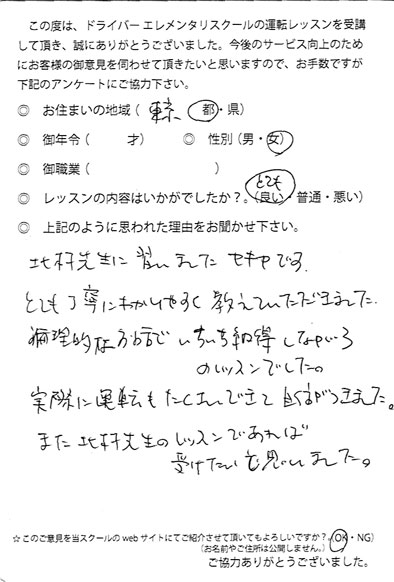 この度は、ドライバー エレメンタリスクールの運転レッスンを受講
して頂き、誠にありがとうございました。今後のサービス向上のため
にお客様の御意見を伺わせて頂きたいと思いますので、お手数ですが
下記のアンケートにご協力下さい。
◎ お住まいの地域（東京 都・県）
◎ 御年令（　　才） ◎ 性別（男・女）
◎ 御職業（　　　　）
とても
◎ レッスンの内容はいかがでしたか？。（良い・普通・悪い）
◎ 上記のように思われた理由をお聞かせ下さい。
北村先生に習いました セキヤです.
とても丁寧にわかりやすく教えていただきました.
理的なお話でいちいち納得しながら
のレッスンでした。
実際に運転もたくさんできて自信がつきました。
また北村先生のレッスンであれば
受けたいと思いました。
☆このご意見を当スクールの web サイトにてご紹介させて頂いてもよろしいですか？（OK・NG）
（お名前やご住所は公開しません。）
ご協力ありがとうございました。